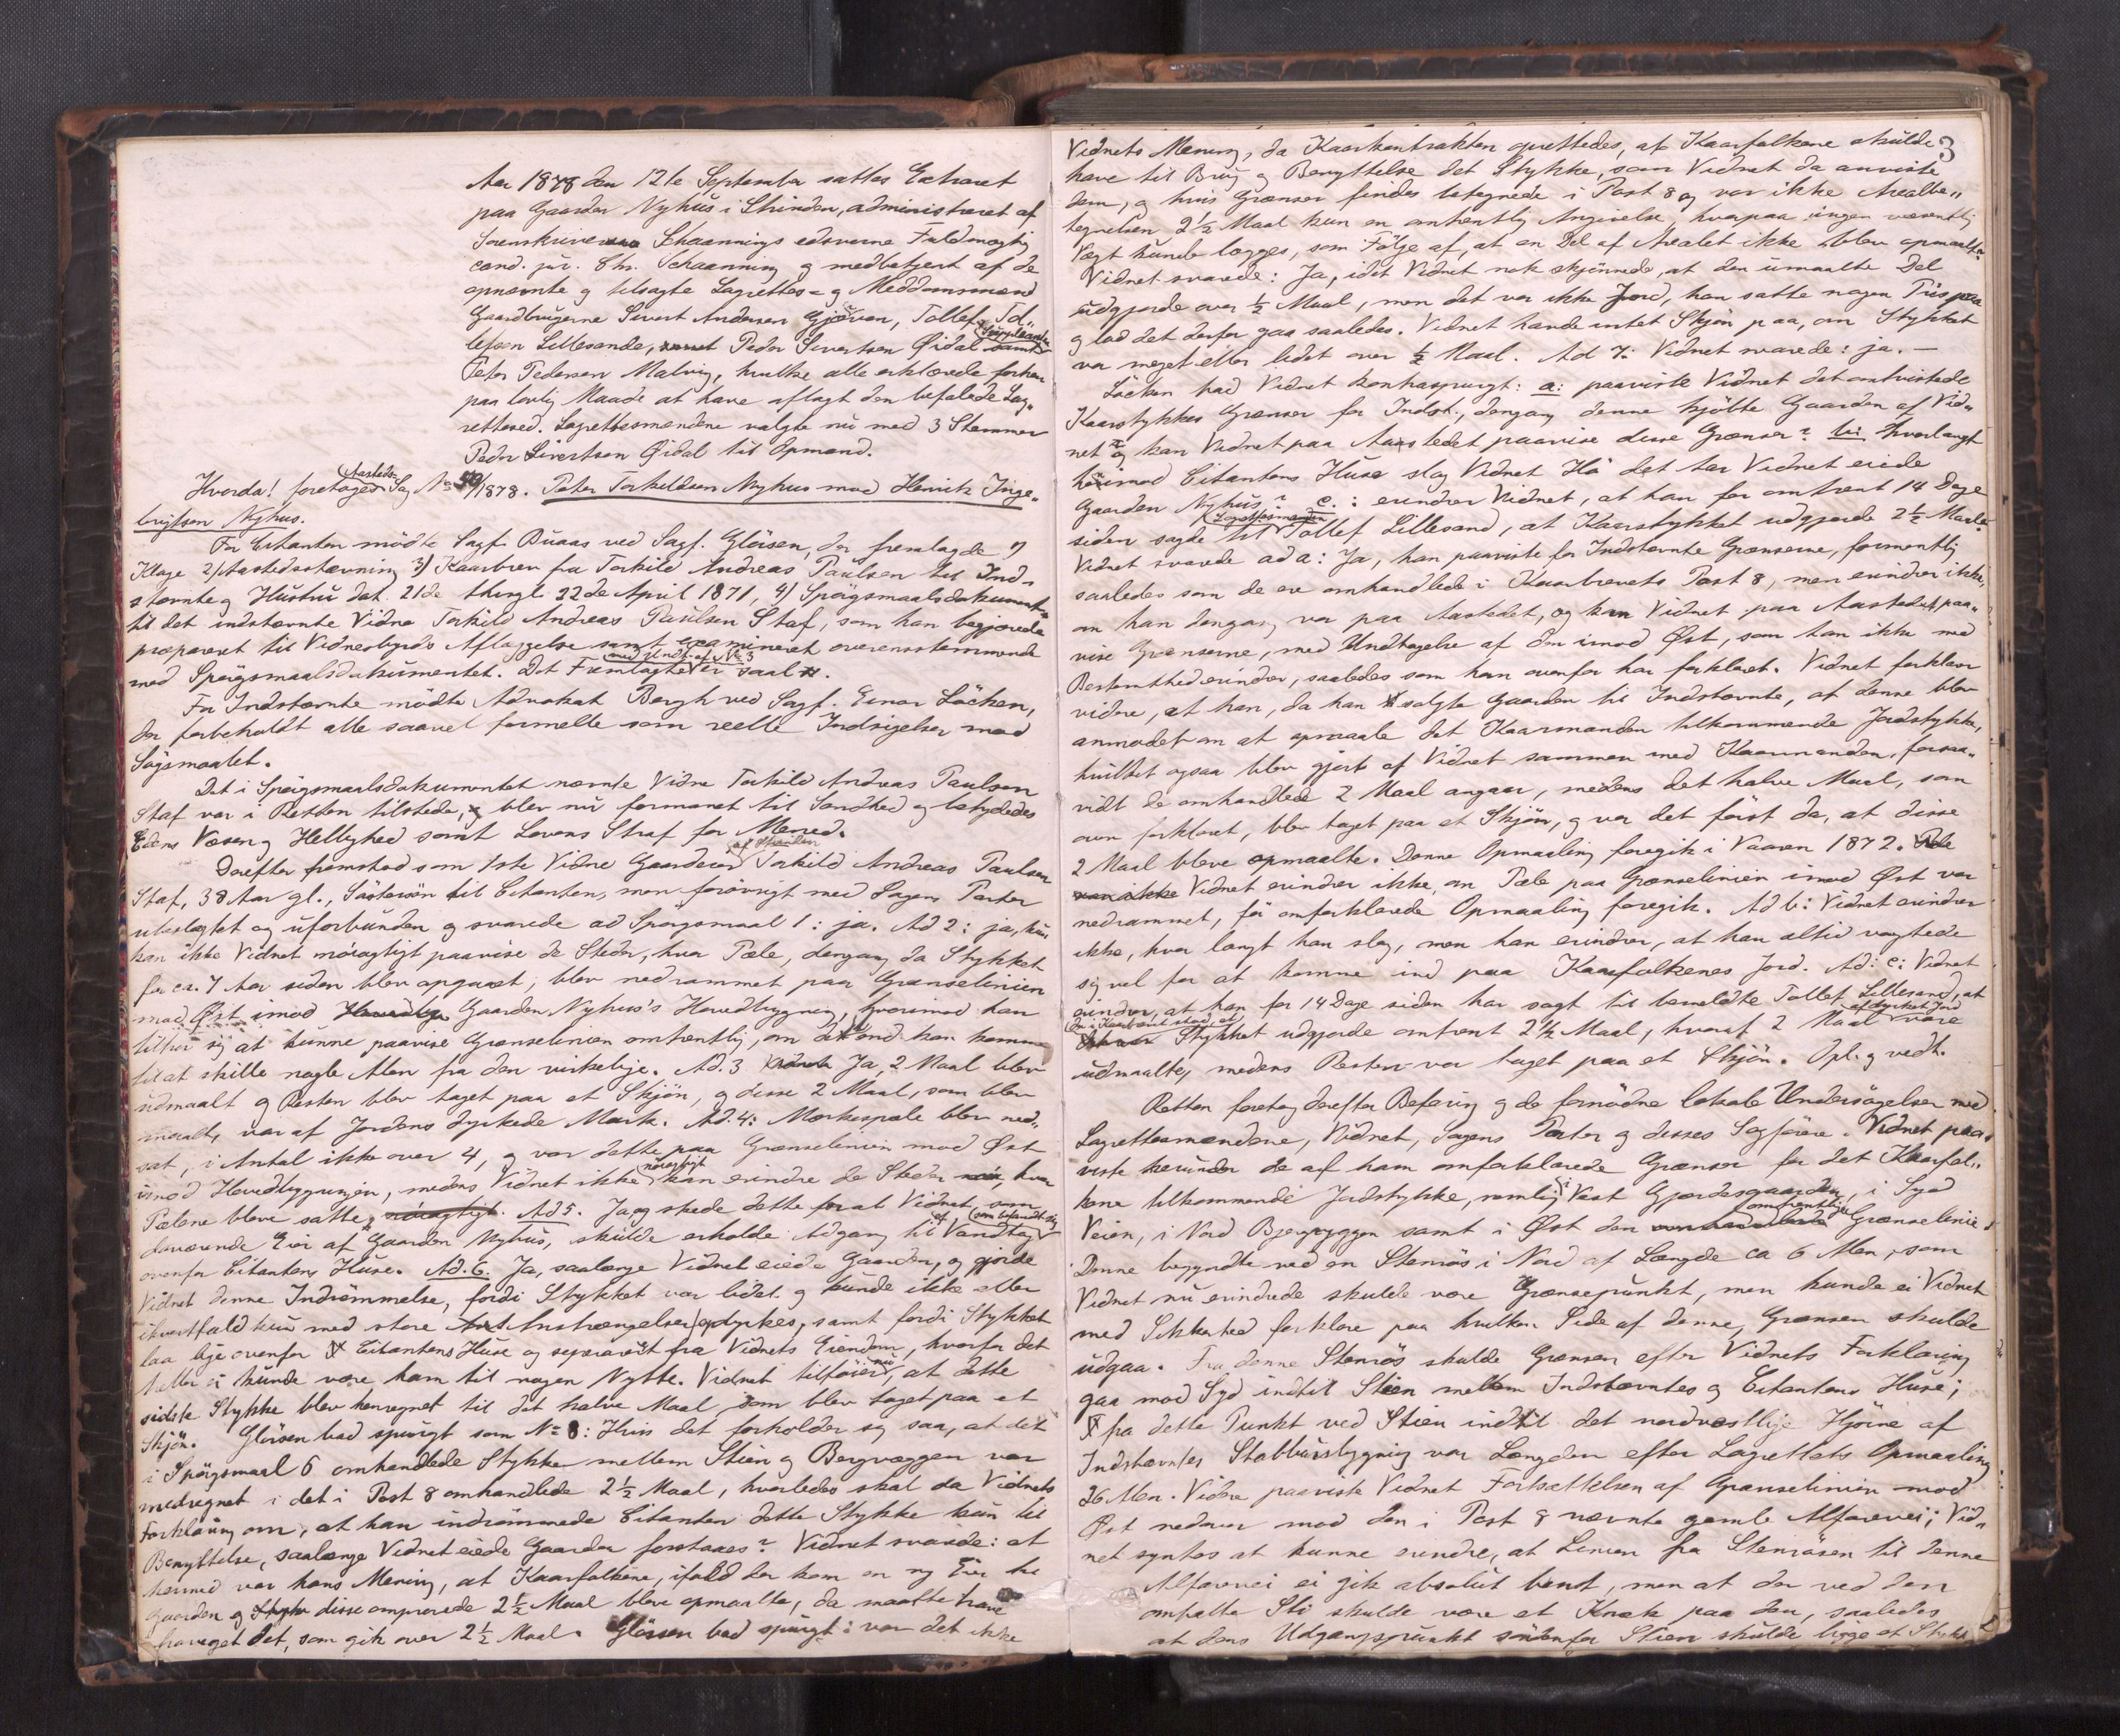 Aar 1878 den 12te September sattes Extraret
paa Gaarden Nyhus i Strinden, administreret af
Sorenskriver Schaannings edsvorne Fuldmægtig
cand. jur. Chr. Schaanning og medbetjent af de
opnævnte og tilsagte Lagrettes- og Meddomsmænd
Gaardbrugerne Sivert Andersen Gjøvran, Tollef Tol„
lefsen Lillesande, Peder Sivertsen Øidal samt Suppleanten
Peter Pedersen Malvig, hvilke alle erklærede forhen
paa lovlig Maade at have aflagt den befalede Lag„
rettesed. Lagrettesmændene valgte nu med 3 Stemmer
Peder Sivertsen Øidal til Opmand.
Hvorda! foretoges Aasteds Sag No 50/1878. Peter Torkildsen Nyhus mod Henrik Inge„
brigtsen Nyhus.
For Citanten mödte Sagf. Buaas ved Sagf. Glörsen, der fremlagde 1)
Klage 2) Aastedsstævning 3) Kaarbrev fra Torkild Andreas Paulsen til Ind„
stævnte og Hustru dat. 21de thingl. 22de April 1871, 4) Spörgsmaalsdokument
til det indstævnte Vidne Torkild Andreas Paulsen Staf, som han begjærede
præpareret til Vidnesbyrds Aflæggelse samt examineret overensstemmende
med Spörgsmaalsdokumentet. Det Fremlagte med Undt. af No 3 er saal.
For Indstævnte mödte Advokat Bergh ved Sagf. Einar Löcken,
der forbeholdt alle saavel formelle som reelle Indsigelser mod
Sögsmaalet.
Det i Spörgsmaalsdokumentet nævnte Vidne Torkild Andreas Paulsen
Staf var i Retten tilstede, blev nu formanet til Sandhed og betydedes
Edens Væsen og Hellighed samt Lovens Straf for Mened.
Derefter fremstod som 1ste Vidne Gaardeier af Stranden Torkild Andreas Paulsen
Staf, 38 Aar gl., Söstersön til Citanten, men forövrigt med Sagens Parter
ubeslægtet og uforbunden og svarede ad Spörgsmaal 1: ja. Ad 2: ja, kun
kan ikke Vidnet nöiagtigt paavise de Steder, hvor Pæle, dengang da Stykket
for ca. 7 Aar siden blev opgaaet, blev nedrammet paa Grænselinien
mod Øst imod Gaarden Nyhus's Hovedbygning, hvorimod han
tiltror sig at kunne paavise Grænselinien omtrentlig, om det end kan komme
til at skille nogle Alen fra den virkelige. Ad. 3 Ja, 2 Maal blev
udmaalt og Resten blev taget paa et Skjön, og disse 2 Maal, som blev
maalt, var af Jordens dyrkede Mark. Ad. 4: Mærkespæle blev ned„
sat, i Antal ikke over 4, og var dette paa Grænselinien mod Øst
imod Hovedbygningen, medens Vidnet ikke nöiagtigt kan erindre de Steder, hvor
Pælene bleve satte. Ad 5. Ja og skede dette forat Vidnet, som
daværende Eier af Gaarden Nyhus, skulde erholde Adgang til et Vandtag som befandt sig
ovenfor Citantens Huse. Ad. 6. Ja, saalænge Vidnet eiede Gaarden, og gjorde
Vidnet denne Indrömmelse, fordi Stykket var lidet og kunde ikke eller
ihvertfald kun med store Anstrængelser opdyrkes, samt fordi Stykket
laa lige ovenfor Citantens Huse og separeret fra Vidnets Eiendom, hvorfor det
heller ei kunde være ham til nogen Nytte. Vidnet tilföier nu, at dette
sidste Stykke blev henregnet til det halve Maal, som blev taget paa et
Skjön. Glörsen bad spurgt som No 8: Hvis det forholder sig saa, at det
i Spörgsmaal 6 omhandlede Stykke mellem Stien og Bergvæggen var
medregnet i det i Post 8 omhandlede 2½ Maal, hvorledes skal da Vidnets
Forklaring om, at han indrömmede Citanten dette Stykke kun til
Benyttelse, saalænge Vidnet eiede Gaarden forstaaes? Vidnet svarede: at
hermed var hans Mening, at Kaarfolkene, ifald der kom en ny Eier til
Gaarden og disse omprovede 2½ Maal bleve opmaalte, da maatte have
fraveget det, som gik over 2½ Maal. Glörsen bad spurgt: var det ikke
3
Vidnets Mening, da Kaarkontrakten oprettedes, at Kaarfolkene skulde
have til Brug og Benyttelse det Stykke, som Vidnet da anviste
dem, og hvis Grænser findes betegnede i Post 8 og var ikke Arealbe„
tegnelsen 2½ Maal kun en omtrentlig Angivelse, hvorpaa ingen væsentlig
Vægt kunde lægges, som Fölge af, at en Del af Arealet ikke blev opmaalt?
Vidnet svarede: Ja, idet Vidnet nok skjönnede, at den umaalte Del
udgjorde over ½ Maal, men det var ikke Jord, han satte nogen Pris paa
og lod det derfor gaa saaledes. Vidnet havde intet Skjön paa, om Stykket
var meget eller lidet over ½ Maal. Ad 7: Vidnet svarede: ja. —
Löcken bad Vidnet kontraspurgt: a: paaviste Vidnet det omtvistede
Kaarstykkes Grænser for Indst., dengang denne kjöbte Gaarden af Vid„
net og kan Vidnet paa Aastedet paavise disse Grænser? b: hvorlangt
henimod Citantens Huse slog Vidnet Hö det Aar Vidnet eiede
Gaarden Nyhus? c.: erindrer Vidnet, at han for omtrent 14 Dage
siden sagde til Lagrettesmanden Tollef Lillesand, at Kaarstykket udgjorde 2½ Maal?
Vidnet svarede ad a: Ja, han paaviste for Indstævnte Grænserne, formentlig
saaledes som de ere omhandlede i Kaarbrevets Post 8, men erindrer ikke,
om han dengang var paa Aastedet, og kan Vidnet paa Aastedet paa„
vise Grænserne, med Undtagelse af den imod Øst, som han ikke med
Bestemthed erindrer, saaledes som han ovenfor har forklaret. Vidnet forklarer
videre, at han, da han solgte Gaarden til Indstævnte, af denne blev
anmodet om at opmaale det Kaarmanden tilkommende Jordstykke,
hvilket ogsaa blev gjort af Vidnet sammen med Kaarmanden, forsaa„
vidt de omhandlede 2 Maal angaar, medens det halve Maal, som
oven forklaret, blev taget paa et Skjön, og var det först da, at disse
2 Maal bleve opmaalte. Denne Opmaaling foregik i Vaaren 1872.
Vidnet erindrer ikke, om Pæle paa Grænselinien imod Øst var
nedrammet, för omforklarede Opmaaling foregik. Ad b: Vidnet erindrer
ikke, hvor langt han slog, men han erindrer, at han altid vogtede
sig vel for at komme ind paa Kaarfolkenes Jord. Ad: c: Vidnet
erindrer, at han for 14 Dage siden har sagt til bemeldte Tollef Lillesand, at
der i Kaarbrevet stod, at Stykket udgjorde omtrent 2½ Maal, hvoraf 2 Maal af dyrket Jord vare
udmaalte, medens Resten var taget paa et Skjön. Opl. og vedt.
Retten foretog derefter Befaring og de fornödne lokale Undersögelser med
Lagrettesmændene, Vidnet, Sagens Parter og disses Sagförere. Vidnet paa„
viste herunder de af ham omforklarede Grænser for det Kaarfol„
kene tilkommende Jordstykke, nemlig i Vest Gjærdesgaarden, i Syd
Veien, i Nord Bjergryggen samt i Øst den omtvistede Grænselinie.
Denne begyndte ved en Stenrös i Nord af Længde ca 6 Alen, som
Vidnet nu erindrede skulde være Grænsepunkt, men kunde ei Vidnet
med Sikkerhed forklare paa hvilken Side af denne, Grænsen skulde
udgaa. Fra denne Stenrös skulde Grænsen efter Vidnets Forklaring
gaa mod Syd indtil Stien mellem Indstævntes og Citantens Huse;
fra dette Punkt ved Stien indtil det nordvestlige Hjörne af
Indstævntes Stabbursbygning var Længden efter Lagrettets Opmaaling
26 Alen. Videre paaviste Vidnet Fortsættelsen af Grænselinien mod
Øst nedover mod den i Post 8 nævnte gamle Alfarevei; Vid„
net syntes at kunne erindre, at Linien fra Stenrösen til denne
Alfarevei ei gik absolut bent, men at der ved den
omtalte Sti skulde være et Knæk paa den, saaledes
at dens Udgangspunkt söndenfor Stien skulde ligge et Stykke